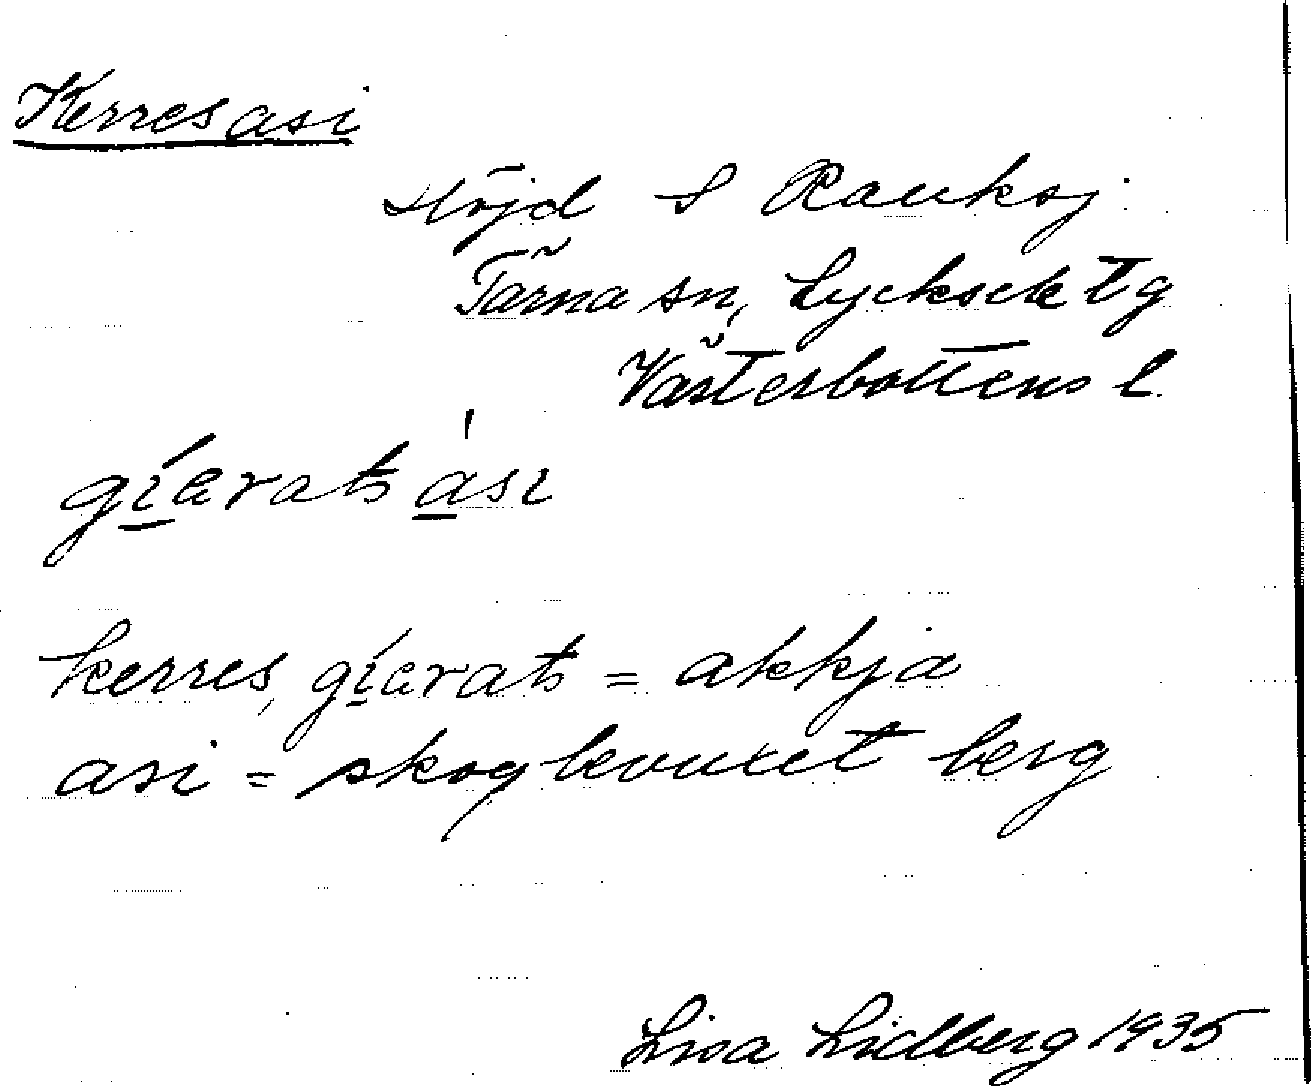 Kerresasi
Höjd S Raukasj.
Tärna sn, Lycksele tg
Västerbottens l.
gíɛrats ási
kerres, gíɛrats = akkja
asi = skogbevuxet berg
Lisa Lidberg 1935